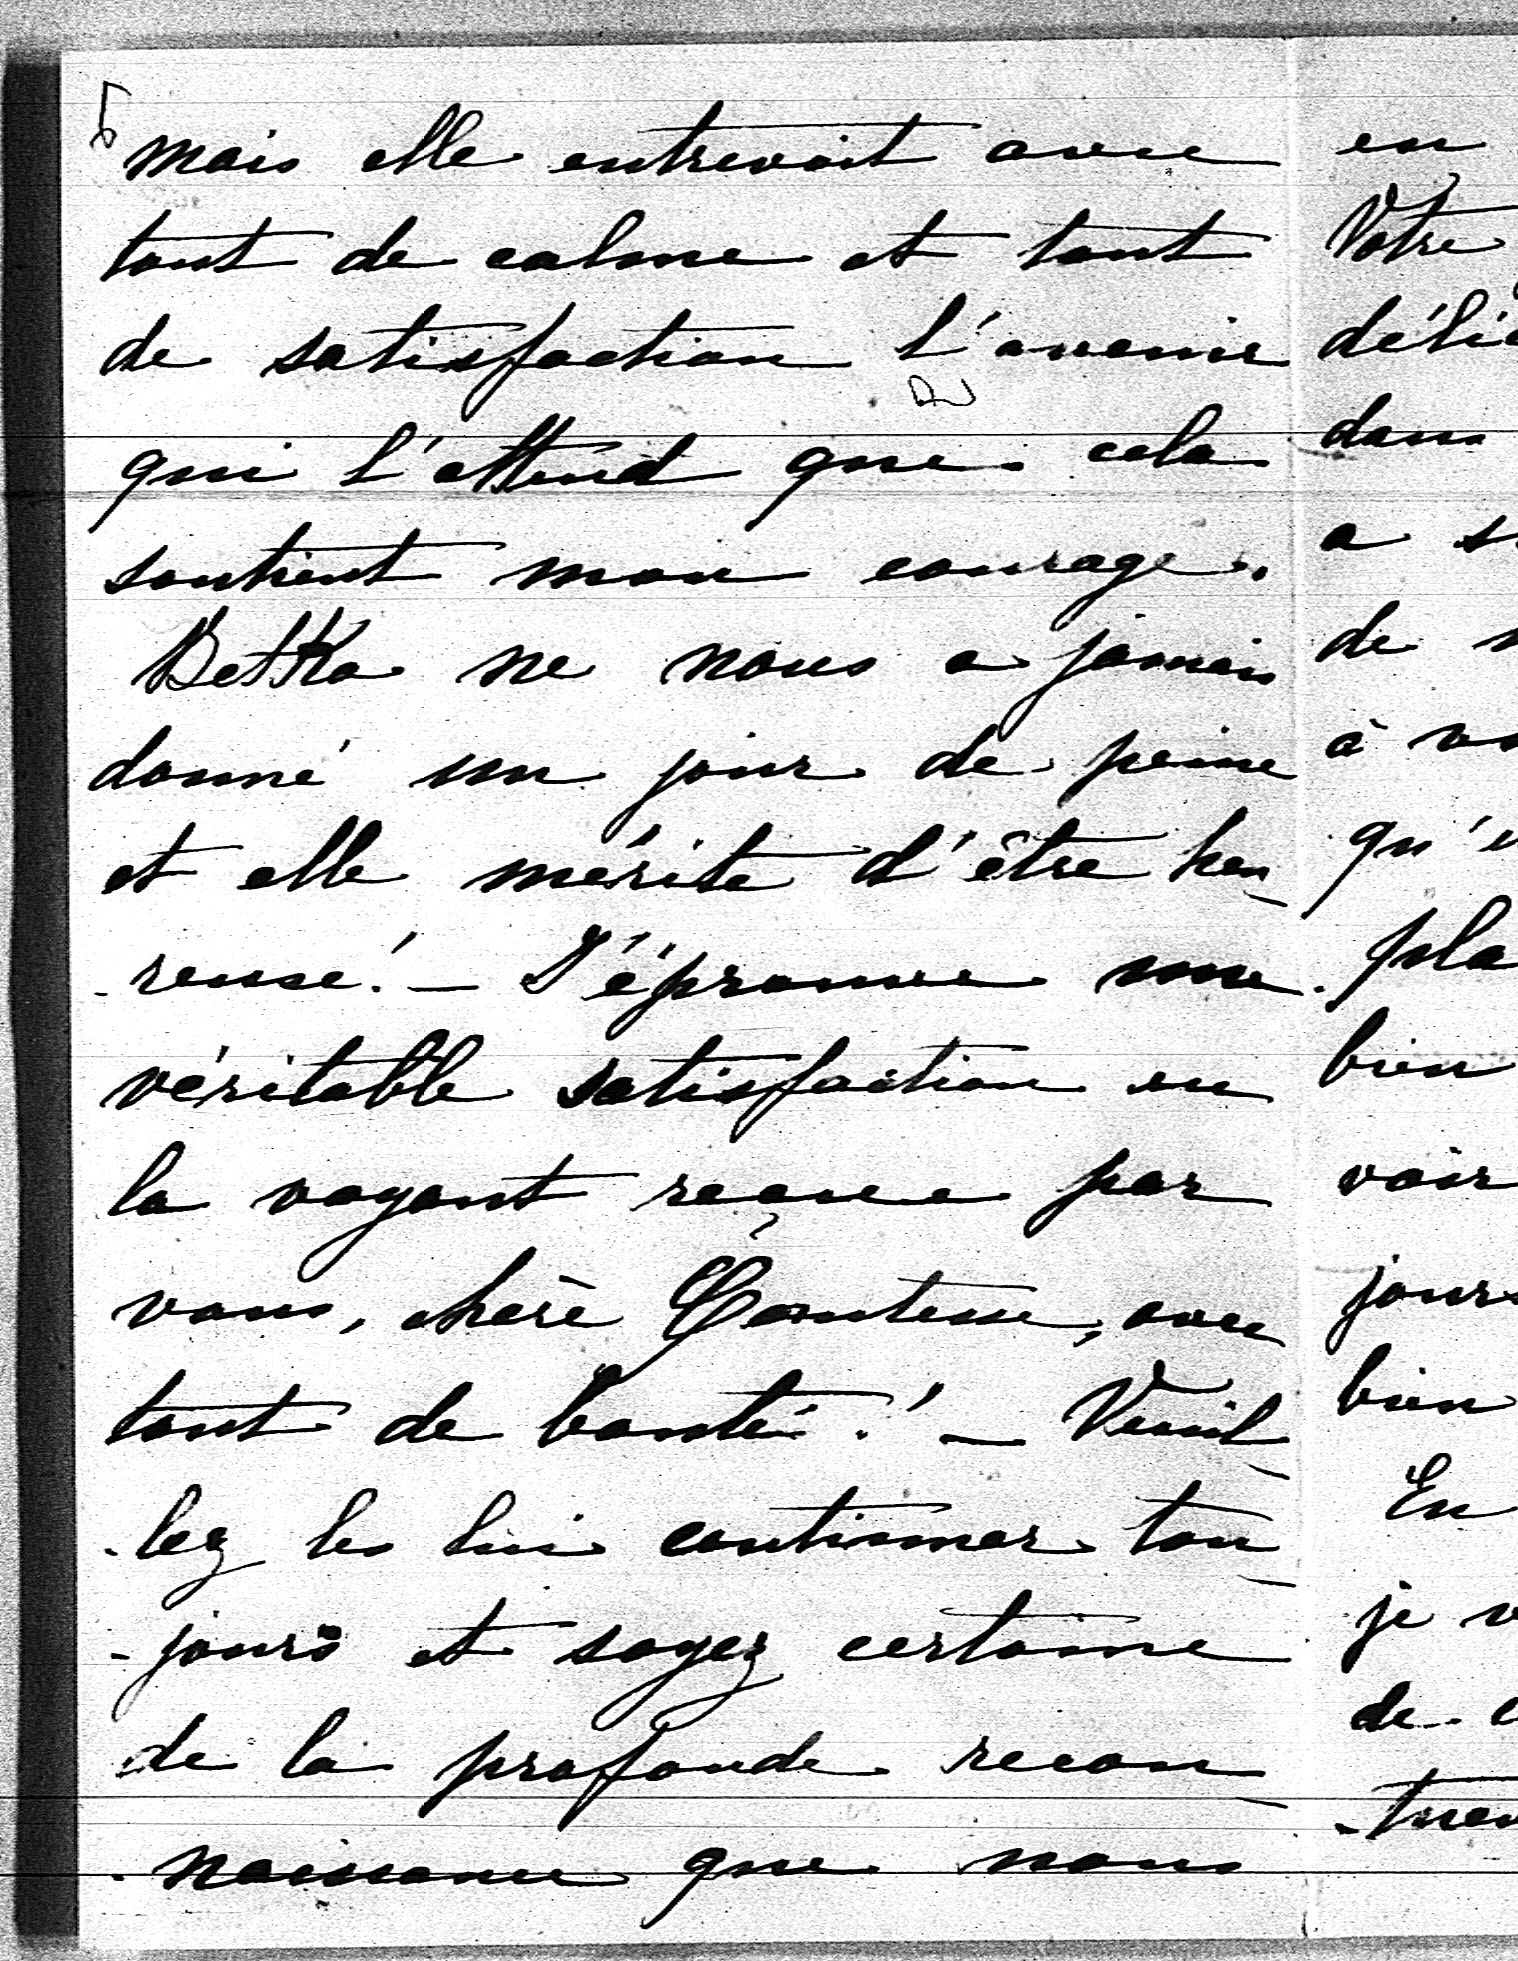 mais elle entrevoit avec
tant de calme et tant
de satisfaction l'avenir
qui l'attend que cela
soutient mon courage.
Betka ne nous a jamais
donné un jour de peine
et elle mérite d'être heu-
-reuse! - J'éprouve une
véritable satisfaction en
la voyant reçue par
vous, chère Comtesse, avec
tant de bonté! - Veuil-
-lez les lui continuer tou-
-jours et soyez certaine
de la profonde recon-
-naissance que nous
en
Votre
déli
dans
a s
de
à vo
qu'
pla
bien
voir
jours
bien
En
je v
de